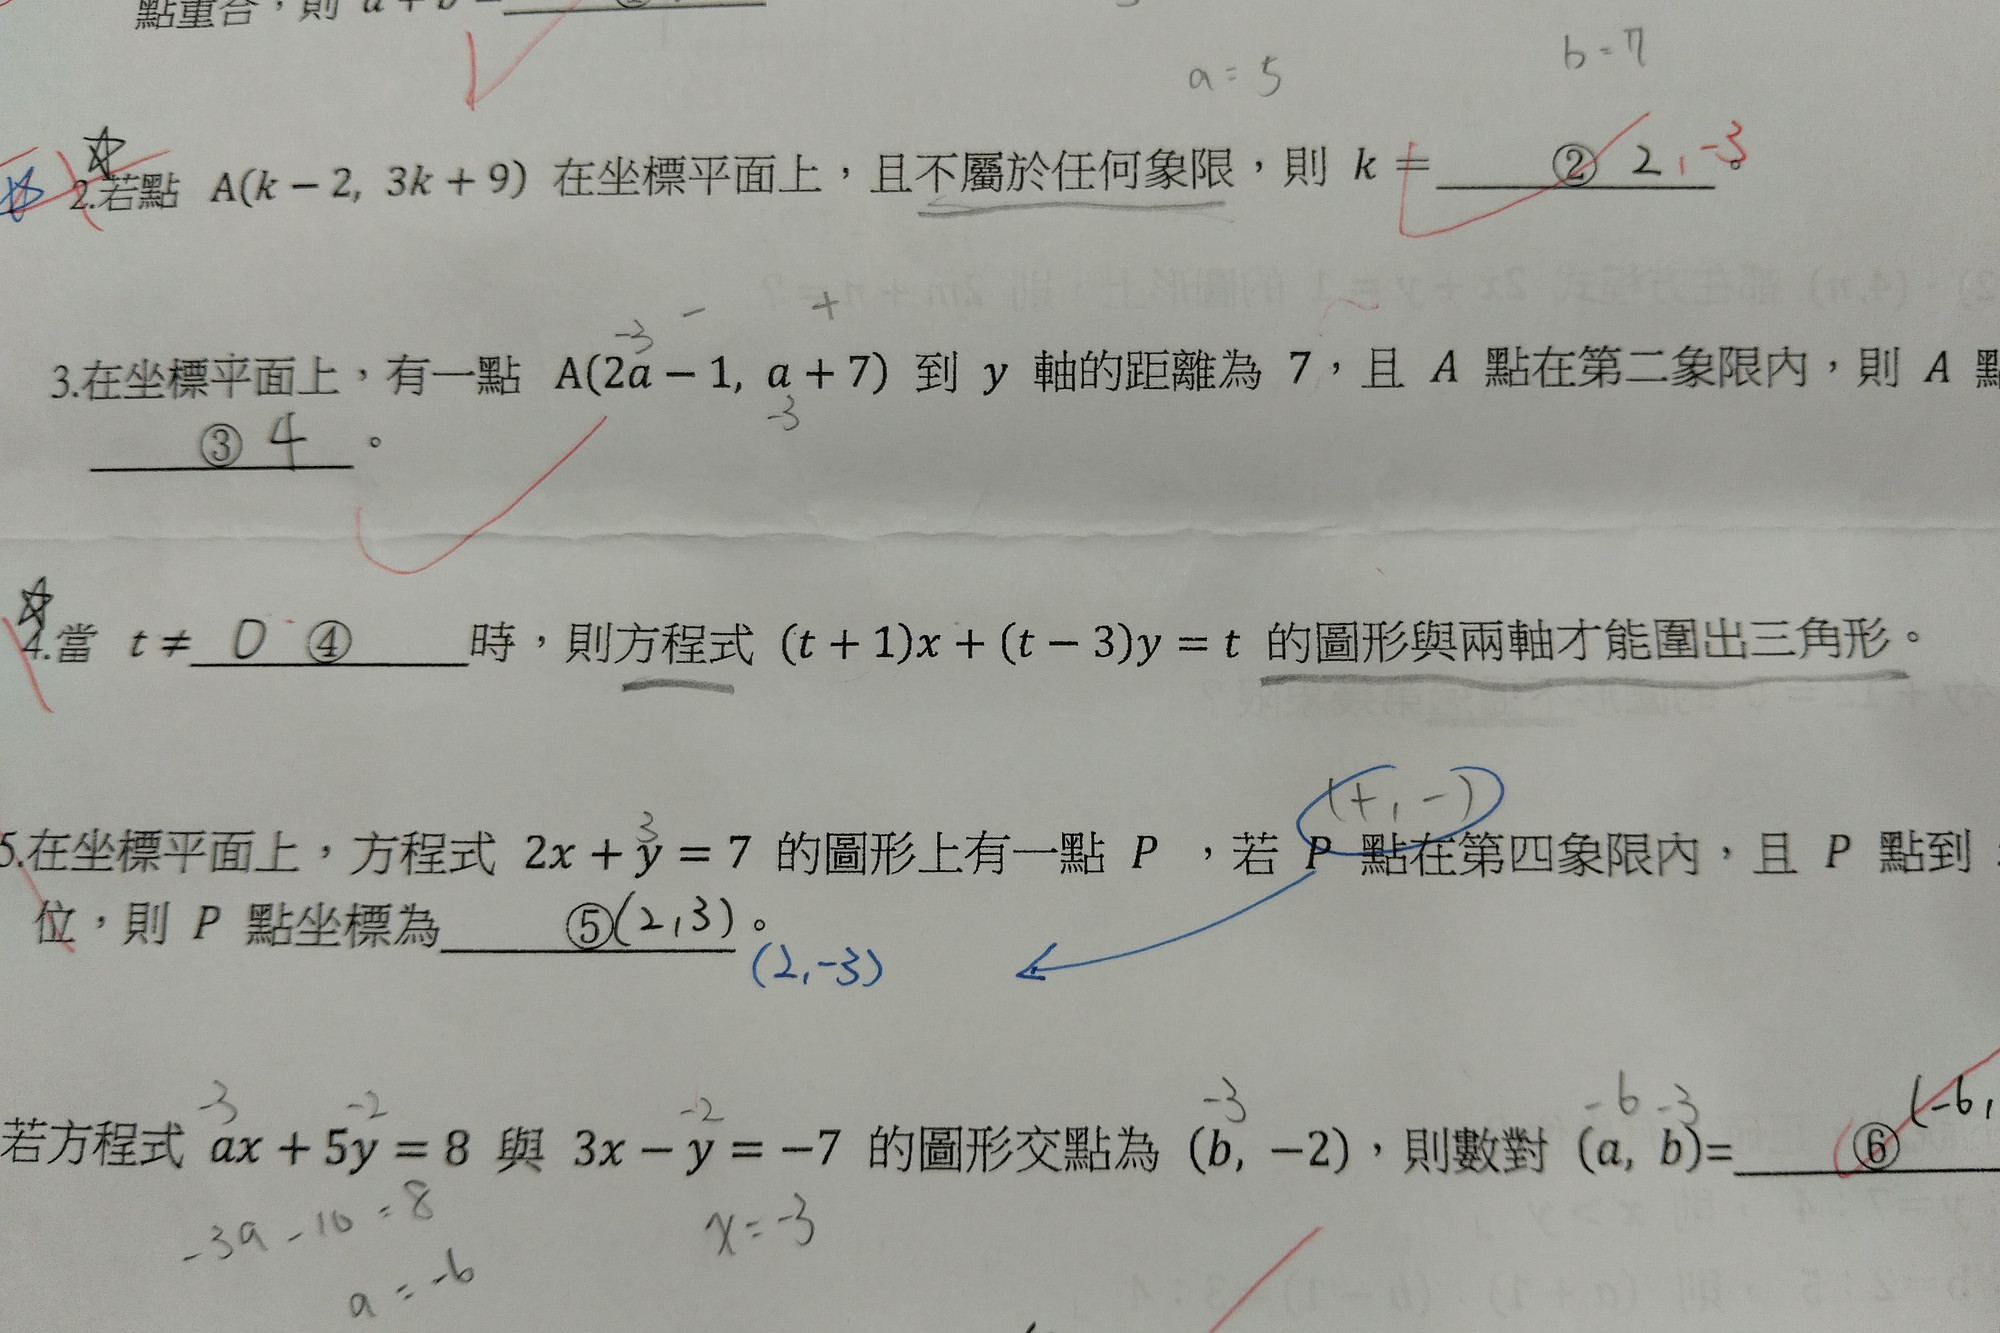 點重合，則 a + b = ①
a = 5
b = 7
2.若點 A(k − 2, 3k + 9) 在坐標平面上，且不屬於任何象限，則 k = ② 2, -3 。
-3 − +
3.在坐標平面上，有一點 A(2a − 1, a + 7) 到 y 軸的距離為 7，且 A 點在第二象限內，則 A 點
-3
③ 4 。
4.當 t ≠ 0 ④ 時，則方程式 (t + 1)x + (t − 3)y = t 的圖形與兩軸才能圍出三角形。
3 (+, -)
5.在坐標平面上，方程式 2x + y = 7 的圖形上有一點 P ，若 P 點在第四象限內，且 P 點到
位，則 P 點坐標為 ⑤ (2,3) 。
(2,-3)
-3 -2 -2 -3 -6 -3 (-6,
若方程式 ax + 5y = 8 與 3x − y = −7 的圖形交點為 (b, −2)，則數對 (a, b)= ⑥
-3a - 10 = 8
x = -3
a = -6